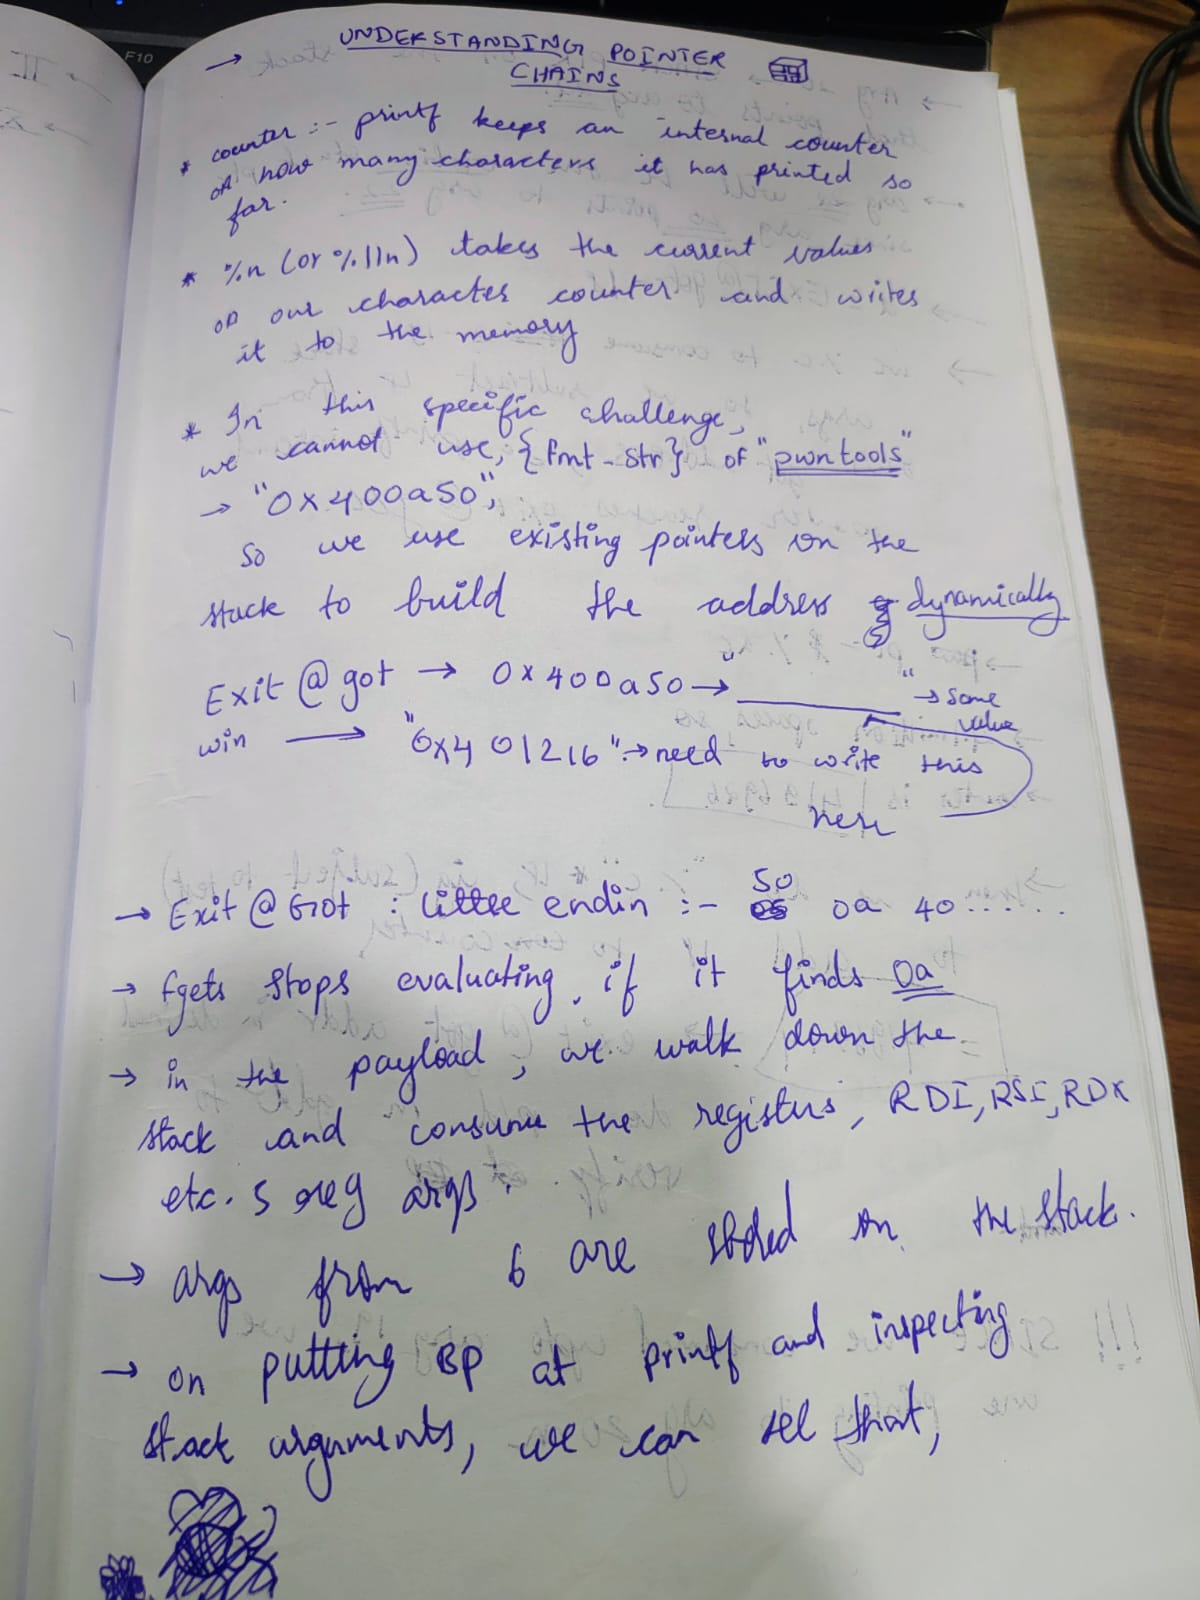 F10
→ UNDERSTANDING POINTER
CHAINS
* counter :- printf keeps an internal counter
of how many characters it has printed so
far.
* %n (or %lln) takes the current values
of our character counter and writes
it to the memory
* In this specific challenge,
we cannot use, {fmt-str} of "pwntools"
→ "0x400a50",
so we use existing pointers on the
stack to build the address dynamically
Exit @ got → 0x400a50 → "______" → some
value
win → "0x401216" → need to write this
here
→ Exit @ GOT : little endin :- 50 0a 40......
→ fgets stops evaluating, if it finds 0a
→ in the payload, we walk down the
stack and consume the registers, RDI, RSI, RDX
etc. 5 reg args.
→ args from 6 are stored on the stack.
→ on putting BP at printf and inspecting
stack arguments, we can see that,